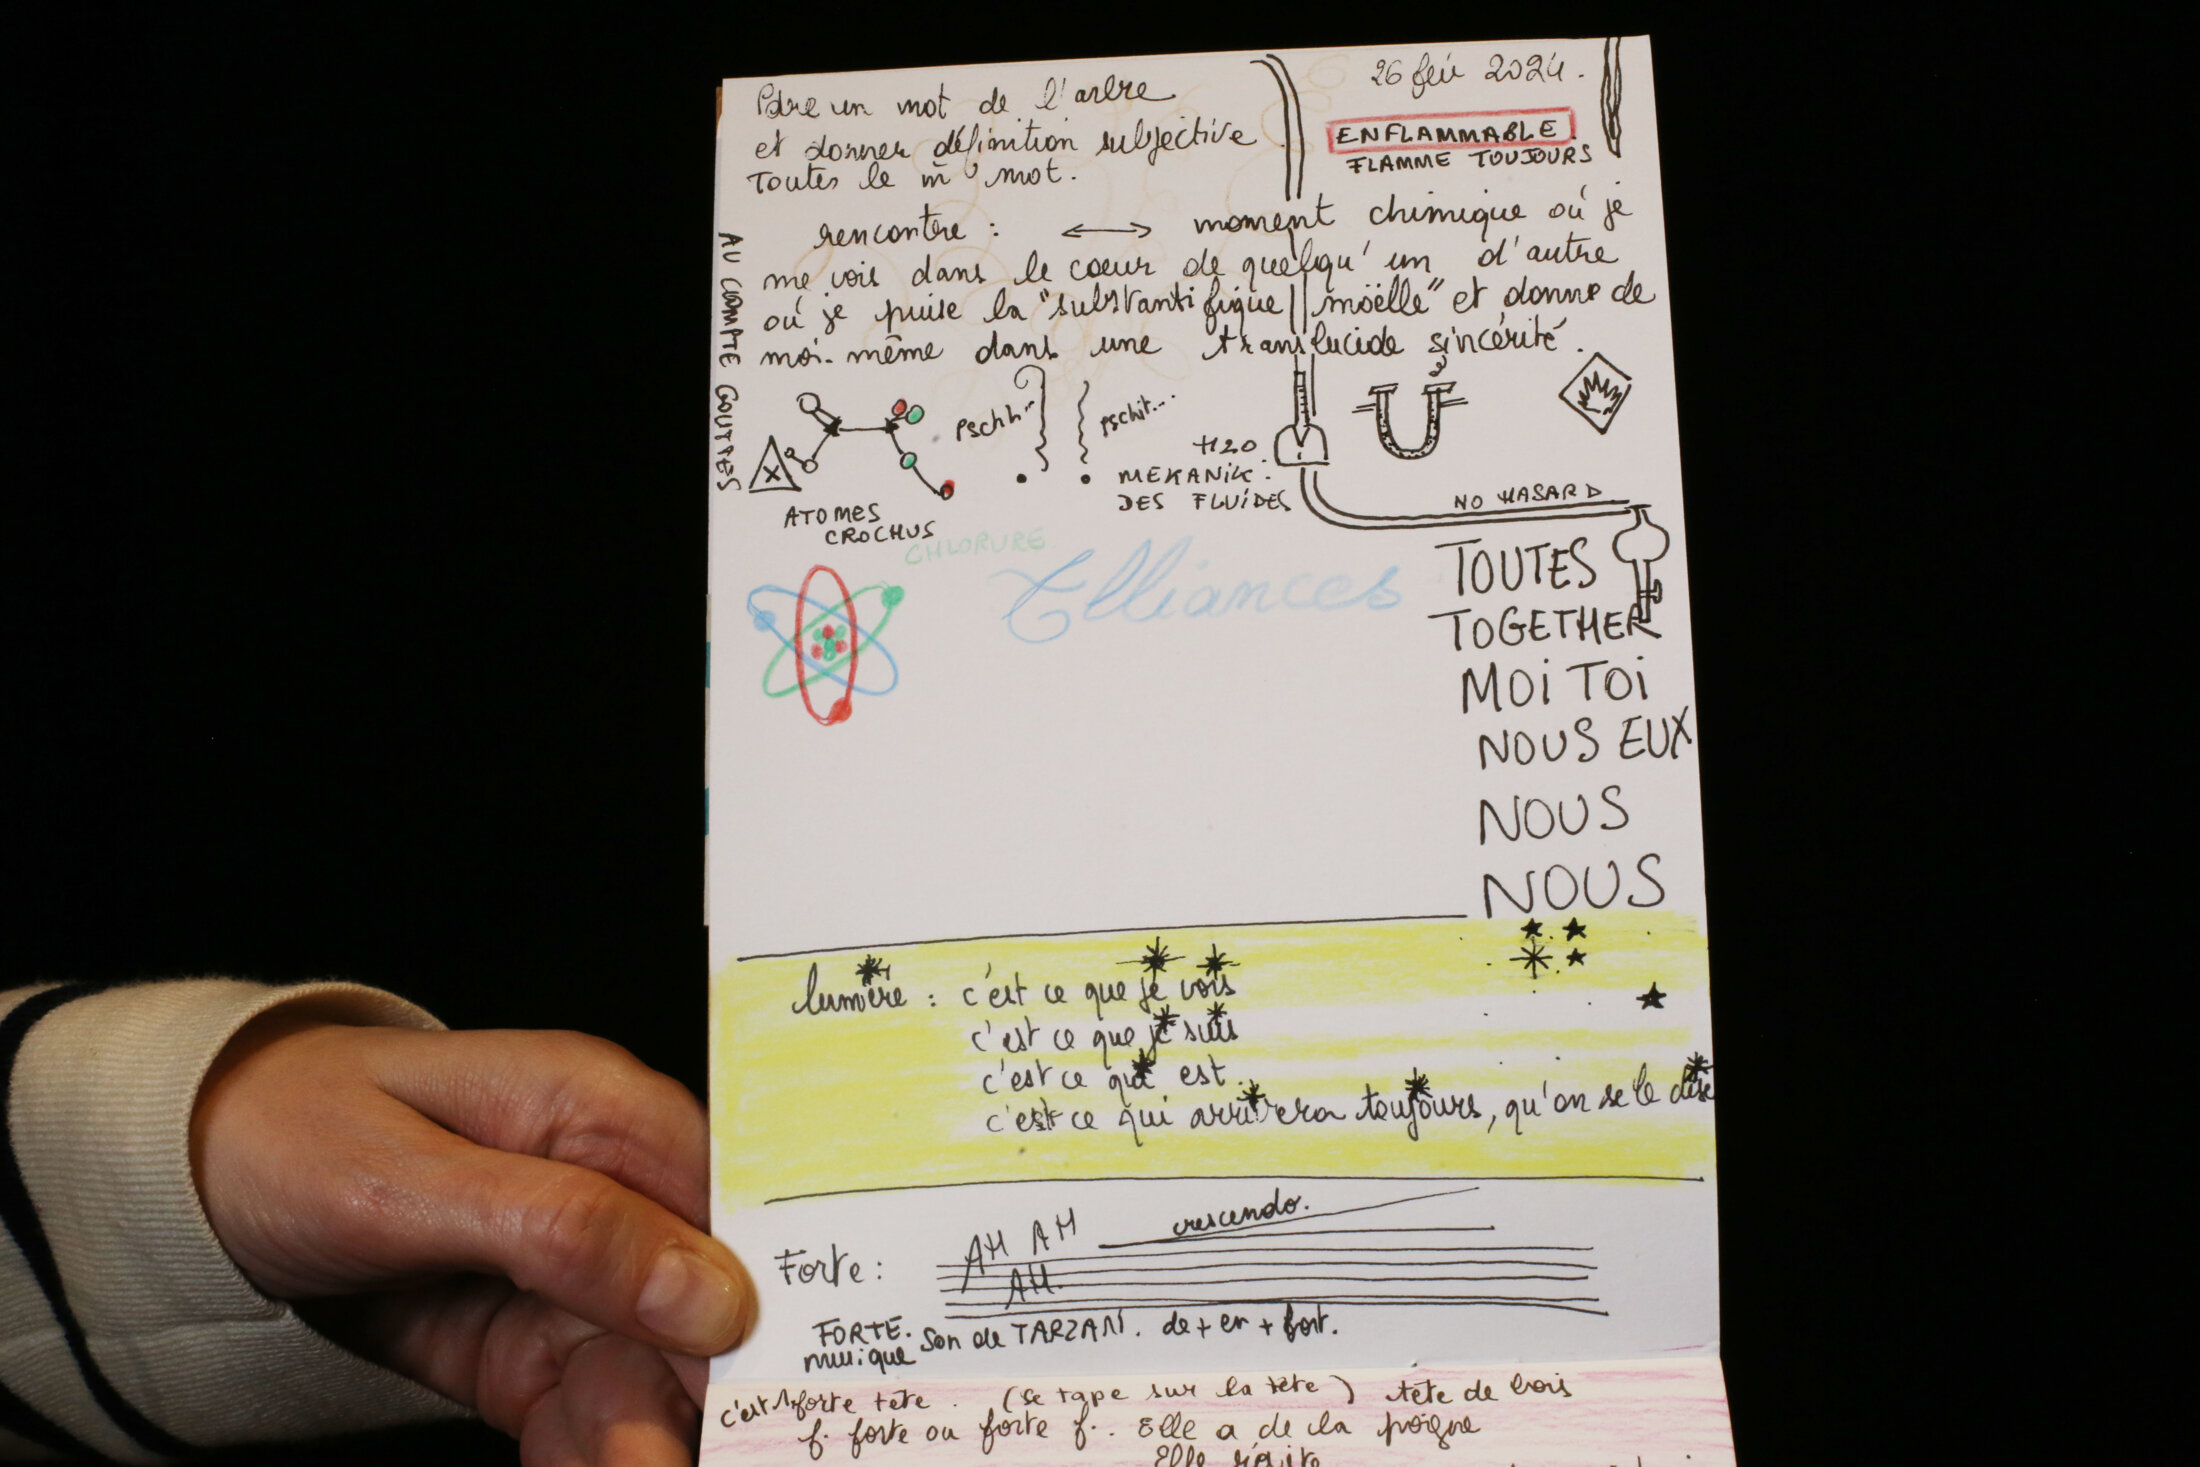 26 fév 2024.
ENFLAMMABLE.
FLAMME TOUJOURS
un mot de l'arbre
et donner définition subjective
Toutes le m̄ mot.
rencontre : ⟷ moment chimique où je
me vois dans le cœur de quelqu'un d'autre
où je puise la "substantifique moëlle" et donne de
moi-même dans une translucide sincérité.
AU COMPTE GOUTTES
Pschh...
pschit...
X
H2O.
MEKANIK.
DES FLUIDES
NO HASARD
ATOMES
CROCHUS
CHLORURE
Elliances
TOUTES
TOGETHER
MOI TOI
NOUS EUX
NOUS
NOUS
lumière : c'est ce que je vois
c'est ce que je suis
c'est ce qui est.
c'est ce qui arrivera toujours, qu'on se le dise
Forte : AH AH
AH.
crescendo.
FORTE. Son de TARZAN. de + en + fort.
musique
c'est 1 forte tête. (se tape sur la tête) tête de bois
f. forte ou forte f.. Elle a de la poigne
Elle